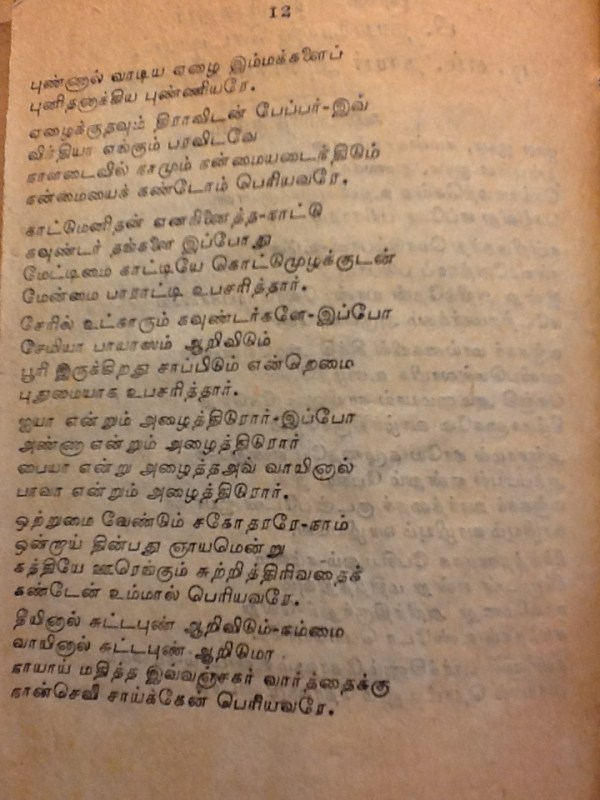 12
புண்ணால் வாடிய ஏழை இம்மக்களைப்
புனிதனாக்கிய புண்ணியரே.
ஏழைக்குதவும் திராவிடன் பேப்பர்-இவ்
விந்தியா எங்கும் பரவிடவே
நாளடைவில் நாமும் நன்மையடைந்திடும்
நன்மையைக் கண்டோம் பெரியவரே.
காட்டுமனிதன் எனநினைத்த-நாட்டு
கவுண்டர் தங்களை இப்போது
மேட்டிமை காட்டியே கொட்டுமுழக்குடன்
மேன்மை பாராட்டி உபசரித்தார்.
சேரில் உட்காரும் கவுண்டர்களே-இப்போ
சேமியா பாயாஸம் ஆறிவிடும்
பூரி இருக்கிறது சாப்பிடும் என்றெமை
புதுமையாக உபசரித்தார்.
ஐயா என்றும் அழைத்திடுரார்-இப்போ
அண்ணா என்றும் அழைத்திடுரார்
பையா என்று அழைத்தஅவ் வாயினால்
பாவா என்றும் அழைத்திடுரார்.
ஒற்றுமை வேண்டும் சகோதரரே-நாம்
ஒன்றாய் தின்பது ஞாயமென்று
கத்தியே ஊரெங்கும் சுற்றித்திரிவதைக்
கண்டேன் உம்மால் பெரியவரே.
தீயினால் சுட்டபுண் ஆறிவிடும்-நம்மை
வாயினால் சுட்டபுண் ஆறிடுமா
நாயாய் மதித்த இவ்வஞ்சகர் வார்த்தைக்கு
நான்செவி சாய்க்கேன் பெரியவரே.